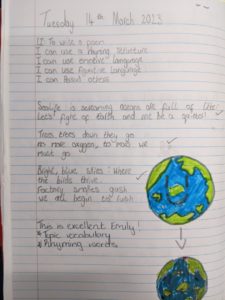 Tuesday 14th March 2023
LI: To write a poem
I can use a rhyming structure
I can use emotive language
I can use figurative language
I can about others
Sealife is screaming oceans are full of life
Let's fight of Earth and not be a
Trees, trees down they go
no more oxygen, so we
must go
Bright, blue skies where
the birds thrive
Factory smells gush
we all begin to rush
This is excellent Emily!
* Topic vocabulary
* Rhyming words